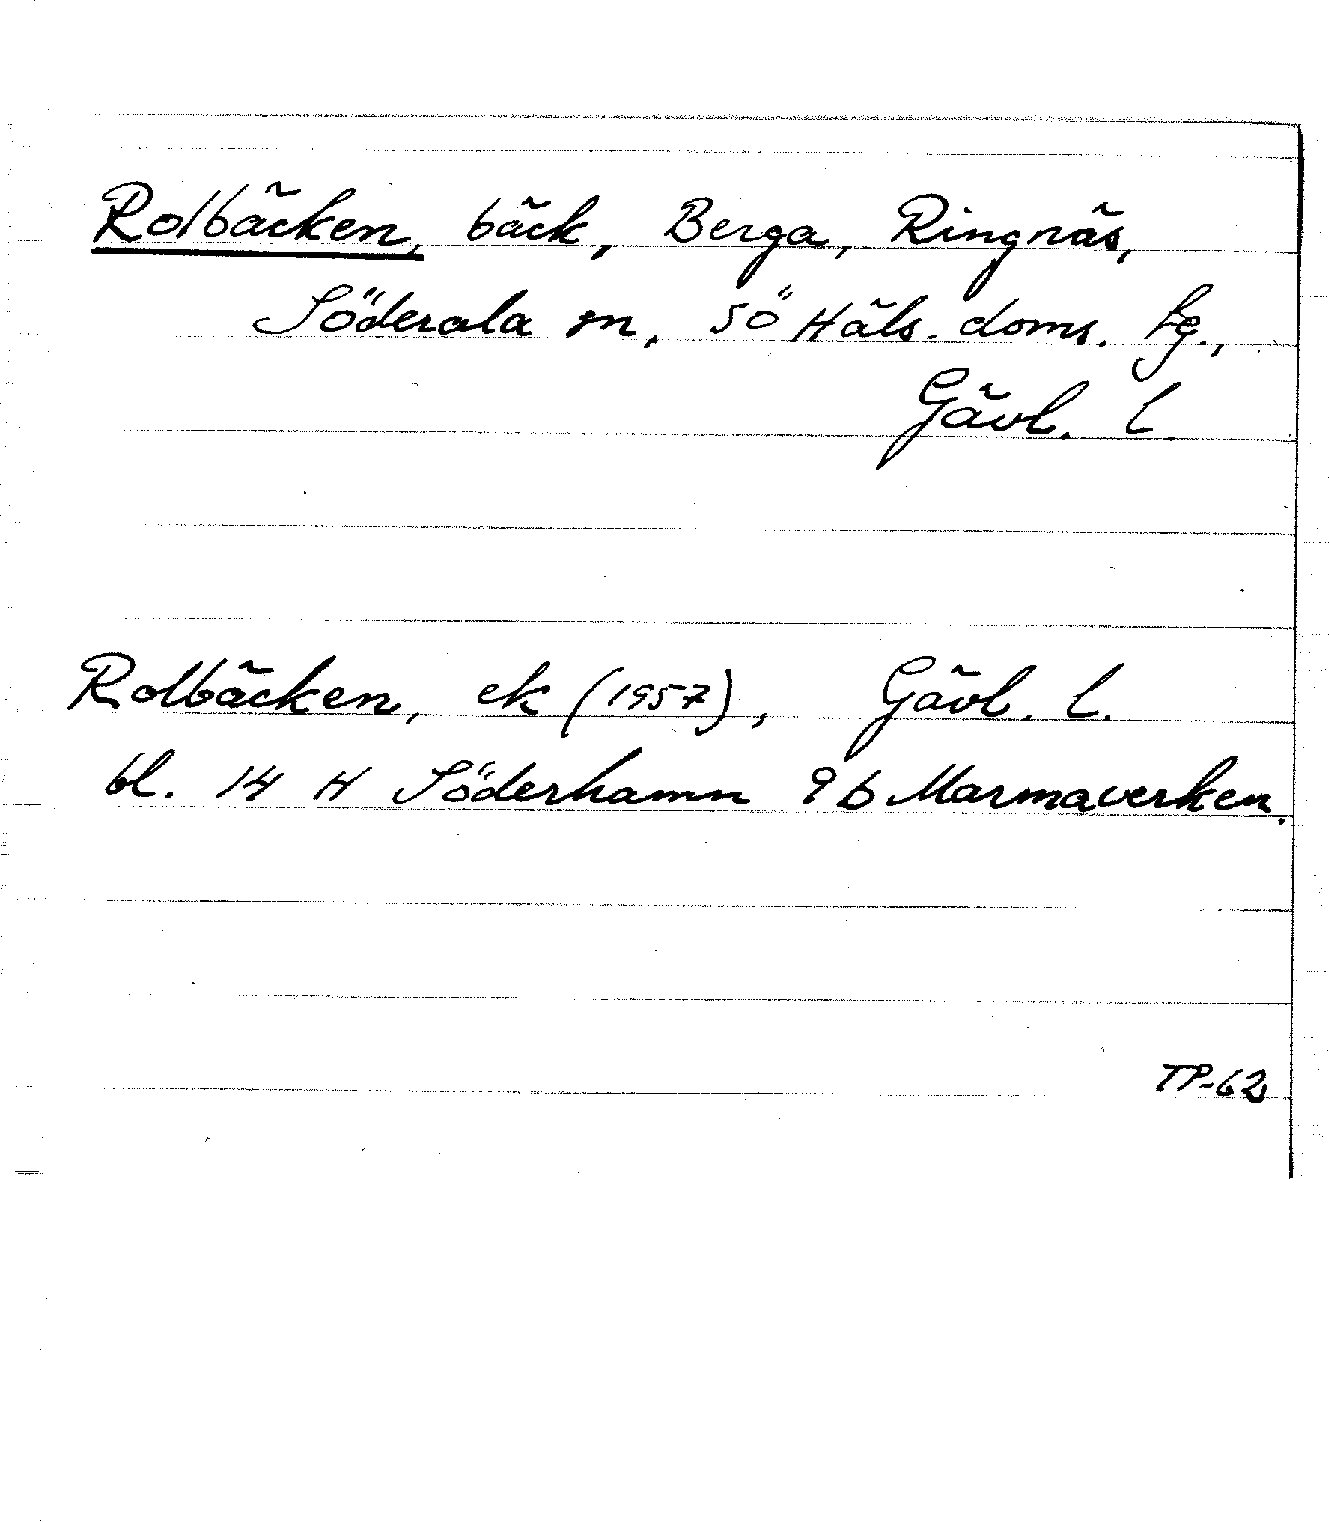 Rolbäcken, bäck, Berga, Ringnäs,
Söderala sn, SÖ Häls. doms. fg.,
Gävl. l
Rolbäcken, ek (1957), Gävl. l.
bl. 14 H Söderhamn 9 b Marmaverken.
TP-62